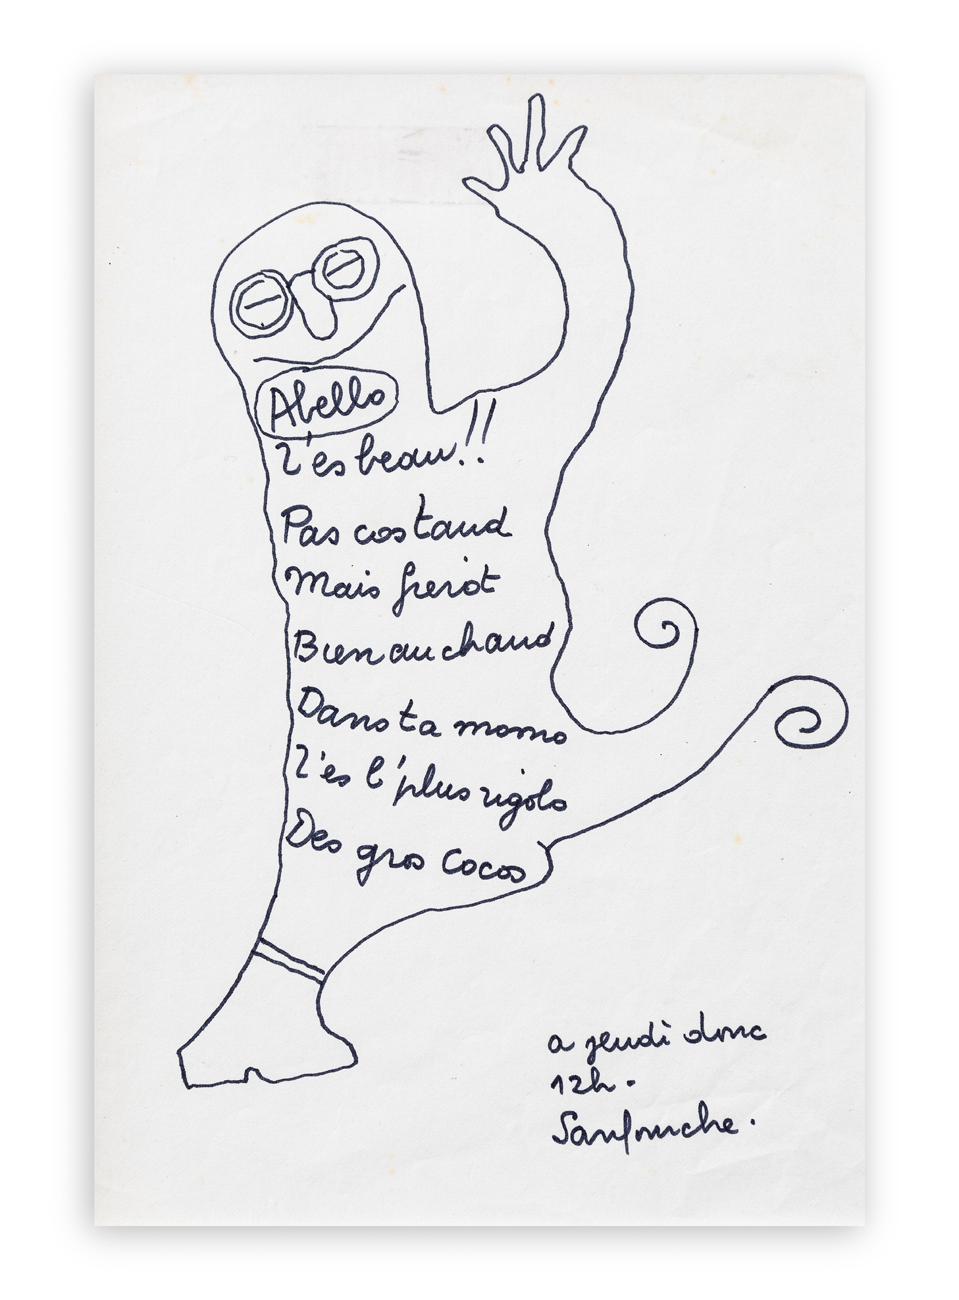 Abello
T'es beau!!
Pas costaud
Mais frérot
Bien au chaud
Dans ta momo
T'es l'plus rigolo
Des gros cocos
a jeudi donc
12h.
Sanfourche.